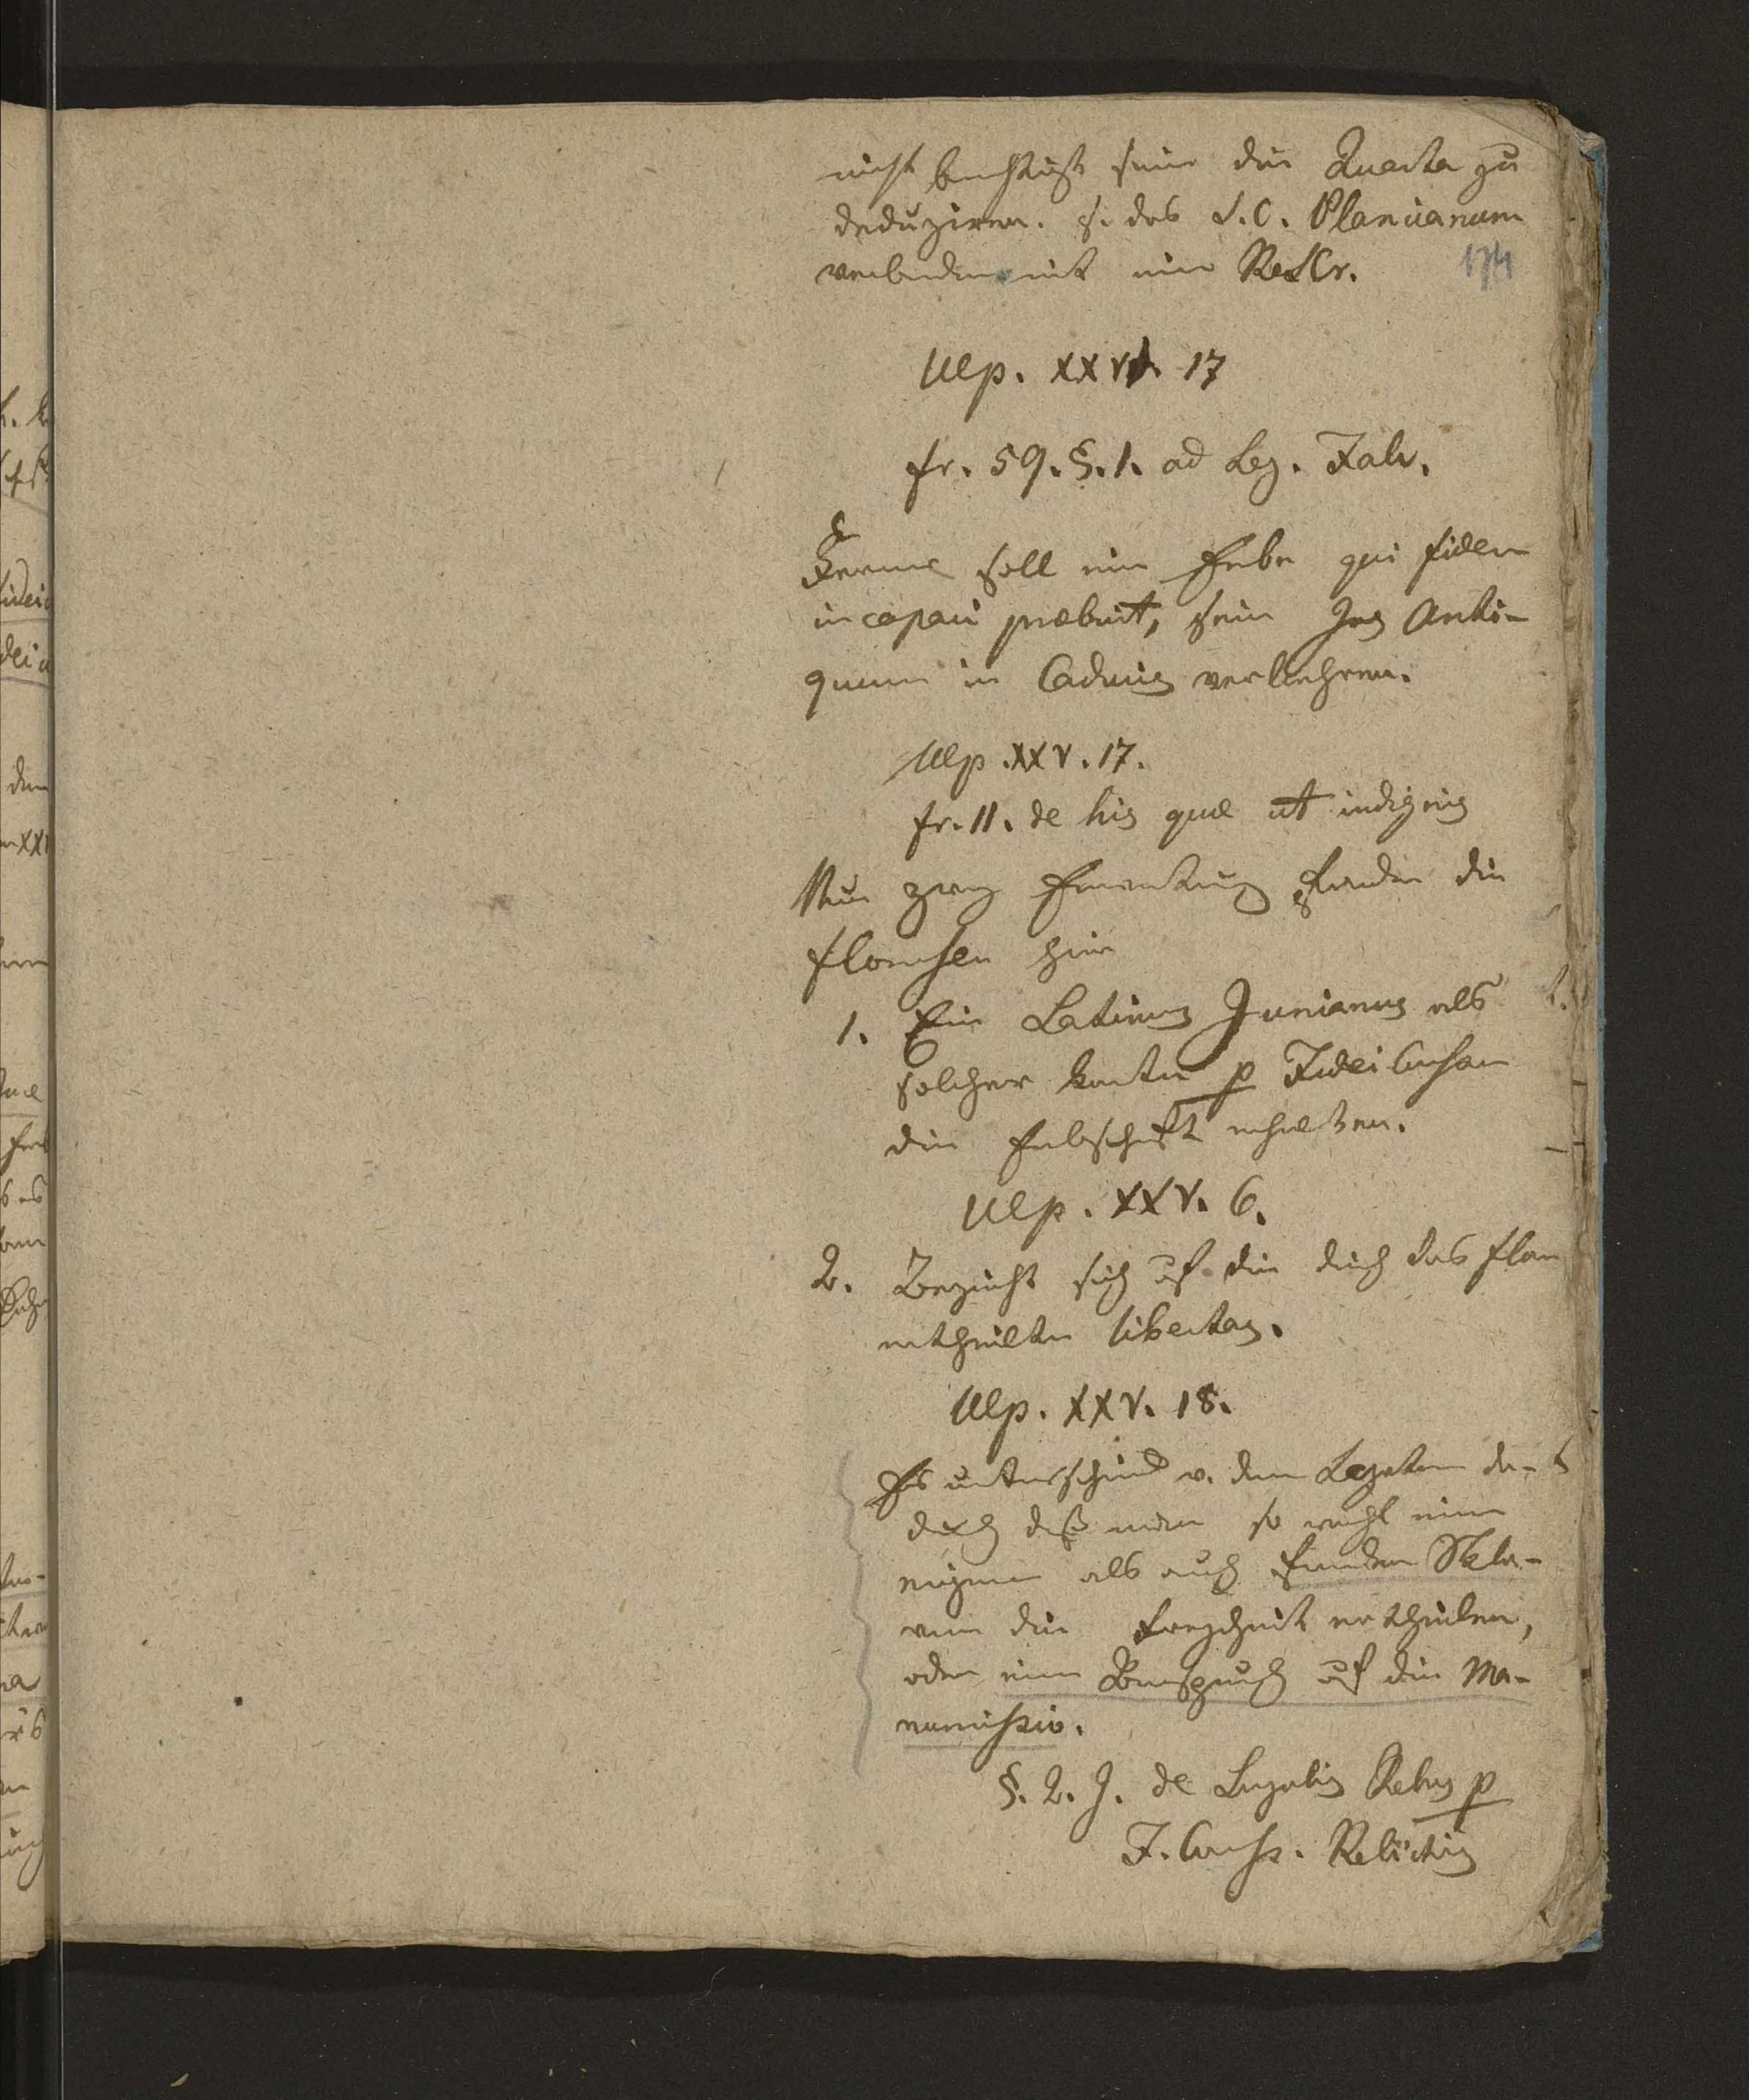 nicht berechtigt sein die Quarta zu
deduziren. s. das S.C. Plancianum
verbunden mit ein Rescr.
174
Ulp. XXV. 17
fr. 59. §. 1. ad Leg. Falc.
Ferner soll ein Erbe qui fidem
incapaci præbuit, sein Jus Anti-
quum in Caducis verliehren.
Ulp. XXV. 17.
fr. 11. de his quæ ut indignis
Nur zwey finden die
hier
1. Ein Latinus Junianus als
solcher konnte p Fidei Comßam
die Erbschaft erhalten.
Ulp. XXV. 6.
2. Bezieht sich auf die durch das fCom
ertheilte libertas.
Ulp. XXV. 18.
Es unterschied v. dem Legatum da-
durch daß man so wohl einen
eignen als auch fremden Skla-
ven die Freyheit ertheilen,
oder einen Anspruch auf die Ma-
numissio.
§. 2. J. de Singulis Rebus p
F. Comiss. Relictis